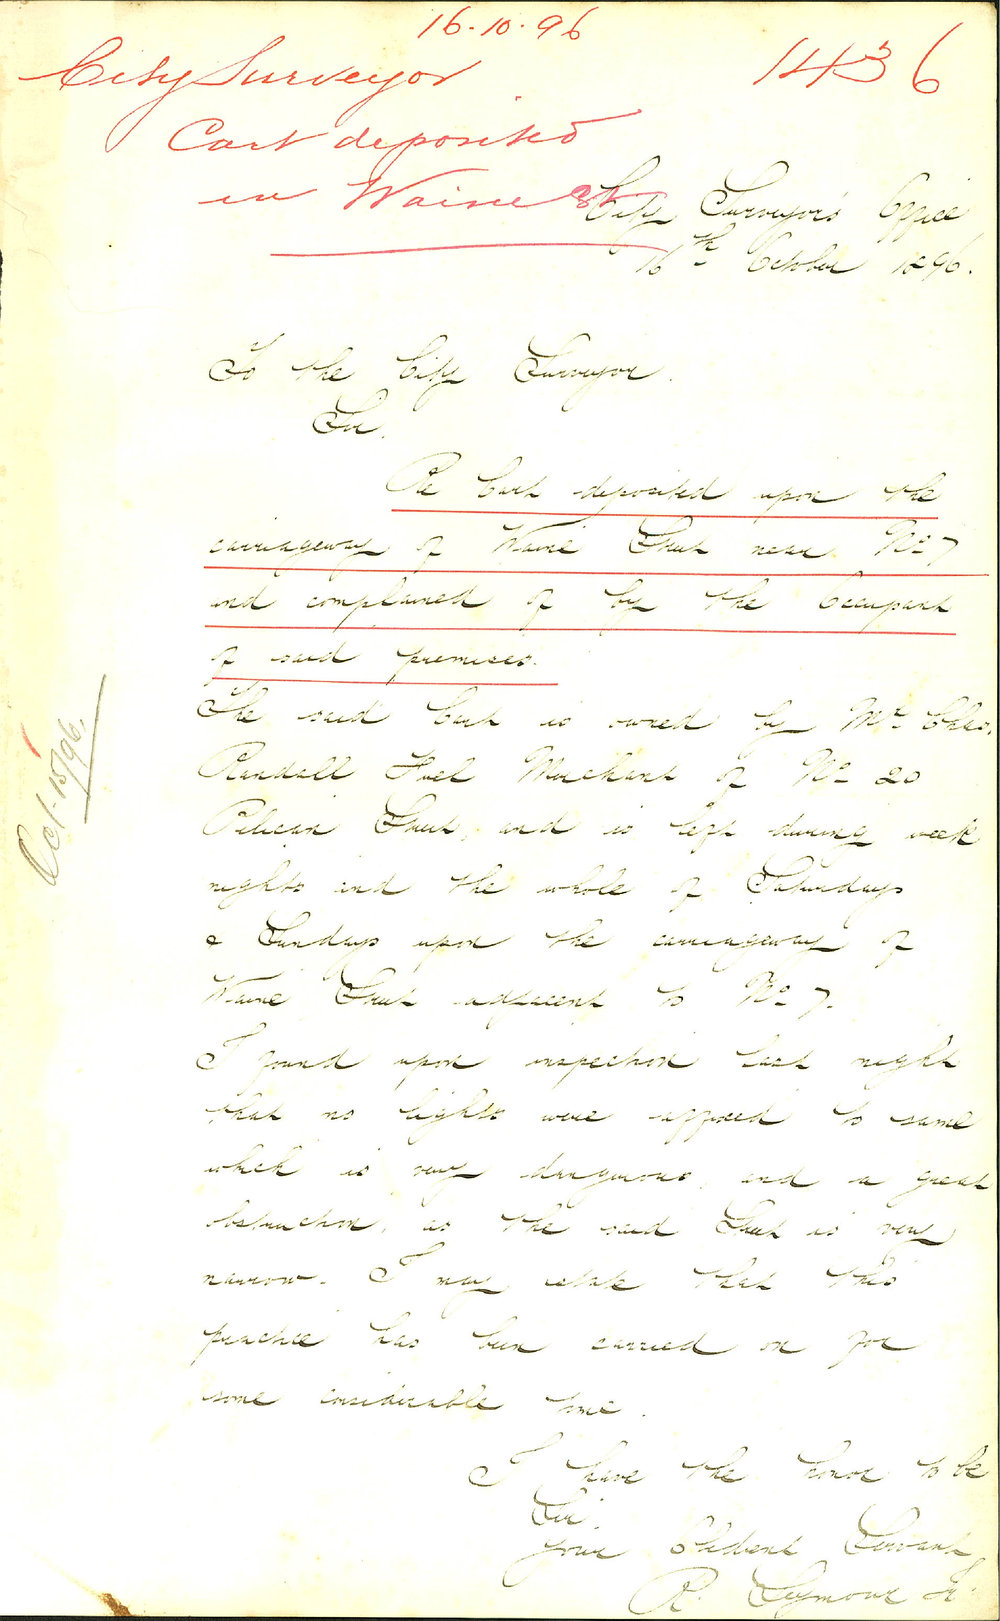 16.10.96
1436
City Surveyor
Cart deposited
in Waine St
City Surveyor's Office
16th October 1896.
To the City Surveyor.
Sir.
Re Cart deposited upon the
carriageway of Waine Street near No 7
and complained of by the Occupant
of said premises.
The said Cart is owned by Mr Chas.
Randall Fuel Merchant of No 20
Pelican Street, and is left during week
nights and the whole of Saturdays
& Sundays upon the carriageway of
Waine Street adjacent to No 7.
I found upon inspection last night
that no lights were affixed to same
which is very dangerous, and a great
obstruction, as the said Street is very
narrow. I may state that this
practice has been carried on for
some considerable time.
I have the honor to be
Sir.
Your Obedient Servant
R. Seymour Jr.
Oct. 15/96.